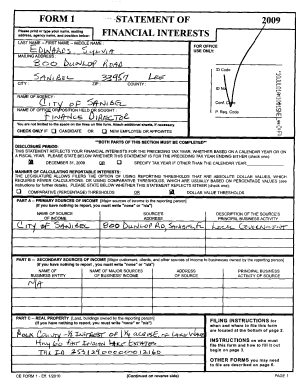 FORM 1 STATEMENT OF 2009
FINANCIAL INTERESTS
Please print or type your name, mailing address, agency name, and position below:
LAST NAME - FIRST NAME - MIDDLE NAME:
EDWARDS, SYLVIA
MAILING ADDRESS:
800 DUNLOP ROAD
SANIBEL 33957 LEE
CITY: ZIP: COUNTY:
NAME OF AGENCY:
CITY OF SANIBEL
NAME OF OFFICE OR POSITION HELD OR SOUGHT:
FINANCE DIRECTOR
You are not limited to the space on the lines on this form. Attach additional sheets, if necessary.
CHECK ONLY IF CANDIDATE OR NEW EMPLOYEE OR APPOINTEE
FOR OFFICE USE ONLY:
ID Code
ID No.
Conf. Code
P. Req. Code
**BOTH PARTS OF THIS SECTION MUST BE COMPLETED**
DISCLOSURE PERIOD:
THIS STATEMENT REFLECTS YOUR FINANCIAL INTERESTS FOR THE PRECEDING TAX YEAR, WHETHER BASED ON A CALENDAR YEAR OR ON A FISCAL YEAR. PLEASE STATE BELOW WHETHER THIS STATEMENT IS FOR THE PRECEDING TAX YEAR ENDING EITHER (check one):
DECEMBER 31, 2009 OR SPECIFY TAX YEAR IF OTHER THAN THE CALENDAR YEAR:
MANNER OF CALCULATING REPORTABLE INTERESTS:
THE LEGISLATURE ALLOWS FILERS THE OPTION OF USING REPORTING THRESHOLDS THAT ARE ABSOLUTE DOLLAR VALUES, WHICH REQUIRES FEWER CALCULATIONS, OR USING COMPARATIVE THRESHOLDS, WHICH ARE USUALLY BASED ON PERCENTAGE VALUES (see instructions for further details). PLEASE STATE BELOW WHETHER THIS STATEMENT REFLECTS EITHER (check one):
COMPARATIVE (PERCENTAGE) THRESHOLDS OR DOLLAR VALUE THRESHOLDS
PART A -- PRIMARY SOURCES OF INCOME [Major sources of income to the reporting person]
(If you have nothing to report, you must write "none" or "n/a")
NAME OF SOURCE OF INCOME SOURCE'S ADDRESS DESCRIPTION OF THE SOURCE'S PRINCIPAL BUSINESS ACTIVITY
CITY OF SANIBEL 800 DUNLOP RD, SANIBEL LOCAL GOVERNMENT
PART B -- SECONDARY SOURCES OF INCOME [Major customers, clients, and other sources of income to businesses owned by the reporting person]
(If you have nothing to report, you must write "none" or "n/a")
NAME OF BUSINESS ENTITY NAME OF MAJOR SOURCES OF BUSINESS' INCOME ADDRESS OF SOURCE PRINCIPAL BUSINESS ACTIVITY OF SOURCE
NA
PART C -- REAL PROPERTY [Land, buildings owned by the reporting person]
(If you have nothing to report, you must write "none" or "n/a")
POLK COUNTY
FILING INSTRUCTIONS for when and where to file this form are located at the bottom of page 2.
INSTRUCTIONS on who must file this form and how to fill it out begin on page 3.
OTHER FORMS you may need to file are described on page 6.
CE FORM 1 - Eff. 1/2010 (Continued on reverse side) PAGE 1